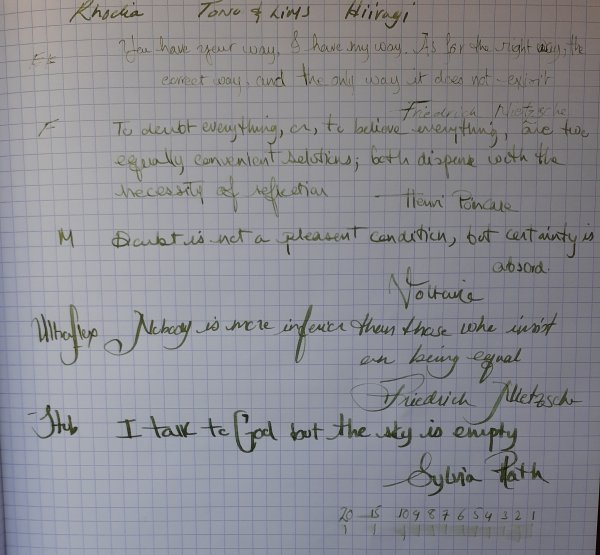 Rhodia Tono & Lims Hiiragi
EF You have your way, I have my way. As for the right way, the
correct way, and the only way it does not exist
Friedrich Nietzsche
F To doubt everything, or, to believe everything, are two
equally convenient solutions; both dispense with the
necessity of reflection
Henri Poincare
M Doubt is not a pleasent condition, but certainty is
absurd.
Voltaire
Ultraflex Nobody is more inferior than those who insist
on being equal
Friedrich Nietzsche
Stub I talk to God but the sky is empty
Sylvia Plath
20 15 10 9 8 7 6 5 4 3 2 1